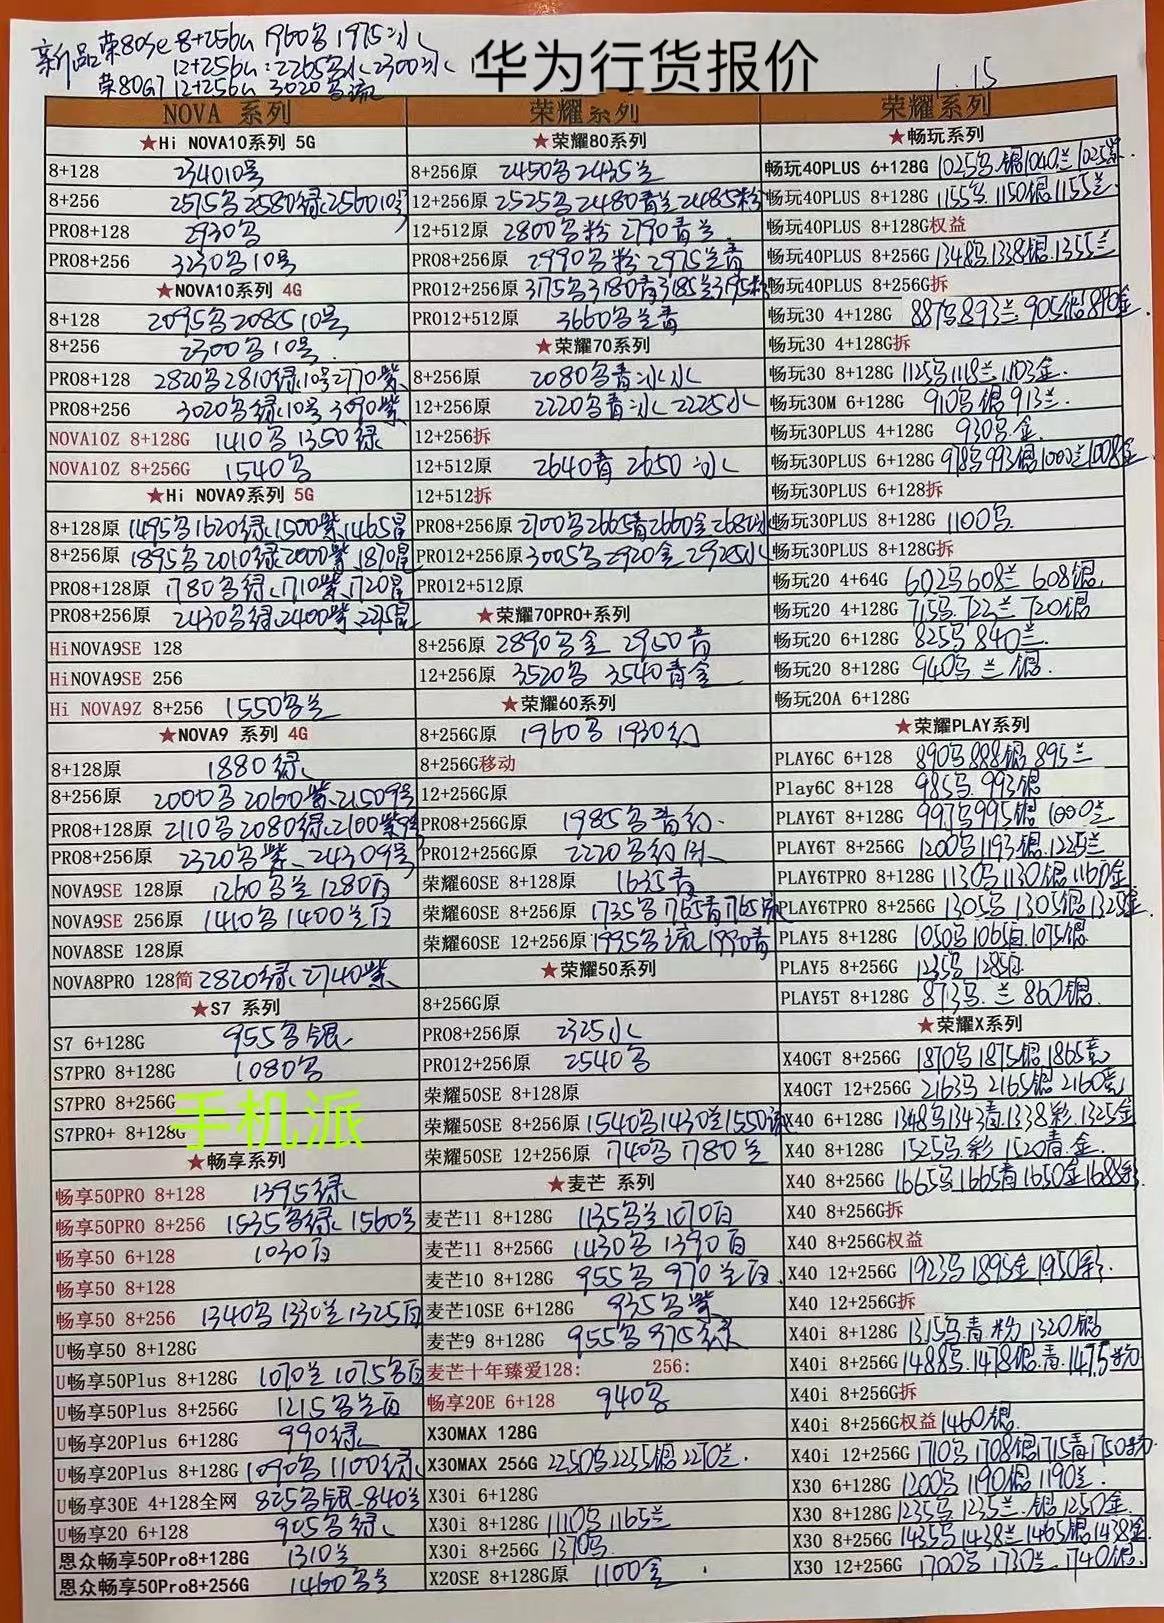 新品 荣80Se 8+256G 1960 1975冰
12+256G: 2265 2300冰
荣80GT 12+256G 3020
华为行货报价
1.15
NOVA 系列
★Hi NOVA10系列 5G
8+128 2340 10号
8+256 2575 2580绿 2560 10号
PRO8+128 2930
PRO8+256 3230 10号
★NOVA10系列 4G
8+128 2095 2085 10号
8+256 2300 10号
PRO8+128 2820 2810绿 10号 2770紫
PRO8+256 3020 绿 10号 3090紫
NOVA10Z 8+128G 1410 1350绿
NOVA10Z 8+256G 1540
★Hi NOVA9系列 5G
8+128原 1495 1620绿 1500紫 1465星
8+256原 1895 2010绿 2000紫 1870星
PRO8+128原 1780 绿 1710紫 1720星
PRO8+256原 2430 绿 2400紫
HiNOVA9SE 128
HiNOVA9SE 256
Hi NOVA9Z 8+256 1550 兰
★NOVA9 系列 4G
8+128原 1880绿
8+256原 2000 2060紫 2150 9号
PRO8+128原 2110 2080绿 2100紫 9号
PRO8+256原 2320 紫 2430 9号
NOVA9SE 128原 1260 兰 1280白
NOVA9SE 256原 1410 1400兰白
NOVA8SE 128原
NOVA8PRO 128简 2820绿 2740紫
★S7 系列
S7 6+128G 955 银
S7PRO 8+128G 1080
S7PRO 8+256G
手机派
S7PRO+ 8+128G
★畅享系列
畅享50PRO 8+128 1395绿
畅享50PRO 8+256 1535 绿 1560兰
畅享50 6+128 1030白
畅享50 8+128
畅享50 8+256 1340 1330兰 1325白
U畅享50 8+128G
U畅享50Plus 8+128G 1070兰 1075 白
U畅享50Plus 8+256G 1215 兰白
U畅享20Plus 6+128G 990绿
U畅享20Plus 8+128G 1090 1100绿
U畅享30E 4+128全网 825 银 840兰
U畅享20 6+128 905 绿
恩众畅享50Pro8+128G 1310兰
恩众畅享50Pro8+256G 1460 兰
荣耀系列
★荣耀80系列
8+256原 2450 2435兰
12+256原 2525 2480青兰 2485粉
12+512原 2800 粉 2790青兰
PRO8+256原 2990 粉 2975兰青
PRO12+256原 3175 3180青 3185兰 3195粉
PRO12+512原 3660 兰青
★荣耀70系列
8+256原 2080 青冰
12+256原 2220 青冰 2225
12+256拆
12+512原 2640青 2650冰
12+512拆
PRO8+256原 2700 2665青 2660金 2680冰
PRO12+256原 3005 2920金 2925冰
PRO12+512原
★荣耀70PRO+系列
8+256原 2890 金 2950青
12+256原 3520 3540青金
★荣耀60系列
8+256G原 1960 1930幻
8+256G移动
12+256G原
PRO8+256G原 1985 青幻
PRO12+256G原 2220 幻
荣耀60SE 8+128原 1635青
荣耀60SE 8+256原 1735 1765青 1765
荣耀60SE 12+256原 1995 流 1990青
★荣耀50系列
8+256G原
PRO8+256原 2325冰
PRO12+256原 2540
荣耀50SE 8+128原
荣耀50SE 8+256原 1540 1430兰 1550
荣耀50SE 12+256原 1740 1780兰
★麦芒 系列
麦芒11 8+128G 1135 兰 1070白
麦芒11 8+256G 1430 1390白
麦芒10 8+128G 955 970兰白
麦芒10SE 6+128G 935 紫
麦芒9 8+128G 955 975绿
麦芒十年臻爱128: 256:
畅享20E 6+128 940
X30MAX 128G
X30MAX 256G 2250 2255银 2270兰
X30i 6+128G
X30i 8+128G 1110 1165兰
X30i 8+256G 1370
X20SE 8+128G原 1100金
荣耀系列
★畅玩系列
畅玩40PLUS 6+128G 1025 银 1040兰 1025
畅玩40PLUS 8+128G 1155 1150银 1155兰
畅玩40PLUS 8+128G权益
畅玩40PLUS 8+256G 1348 1338银 1355兰
畅玩40PLUS 8+256G拆
畅玩30 4+128G 887 893兰 905银 890金
畅玩30 4+128G拆
畅玩30 8+128G 1125 1118兰 1103金
畅玩30M 6+128G 910 银 913兰
畅玩30PLUS 4+128G 930 金
畅玩30PLUS 6+128G 978 993银 1000兰 1008金
畅玩30PLUS 6+128拆
畅玩30PLUS 8+128G 1100
畅玩30PLUS 8+128G拆
畅玩20 4+64G 602 608兰 608银
畅玩20 4+128G 715 722兰 720银
畅玩20 6+128G 825 840兰
畅玩20 8+128G 940 兰 银
畅玩20A 6+128G
★荣耀PLAY系列
PLAY6C 6+128 890 888银 895兰
Play6C 8+128 985 992银
PLAY6T 8+128G 997 995银 1000兰
PLAY6T 8+256G 1200 1193银 1225兰
PLAY6TPRO 8+128G 1130 1130银 1160金
PLAY6TPRO 8+256G 1305 1305银 1325金
PLAY5 8+128G 1050 1065白 1075银
PLAY5 8+256G 1235 1285白
PLAY5T 8+128G 873 兰 860银
★荣耀X系列
X40GT 8+256G 1870 1875银 1865竞
X40GT 12+256G 2163 2165银 2160竞
X40 6+128G 1348 1343青 1338彩 1325金
X40 8+128G 1525 彩 1520青 金
X40 8+256G 1665 1665青 1650金 1688彩
X40 8+256G拆
X40 8+256G权益
X40 12+256G 1923 1895金 1950彩
X40 12+256G拆
X40i 8+128G 1315 青 粉 1320银
X40i 8+256G 1488 1478银 青 1475粉
X40i 8+256G拆
X40i 8+256G权益 1460银
X40i 12+256G 1710 1708银 1715青 1750粉
X30 6+128G 1200 1190银 1190兰
X30 8+128G 1235 1235兰 银 1250金
X30 8+256G 1435 1438兰 1465银 1438金
X30 12+256G 1700 1730兰 1740银